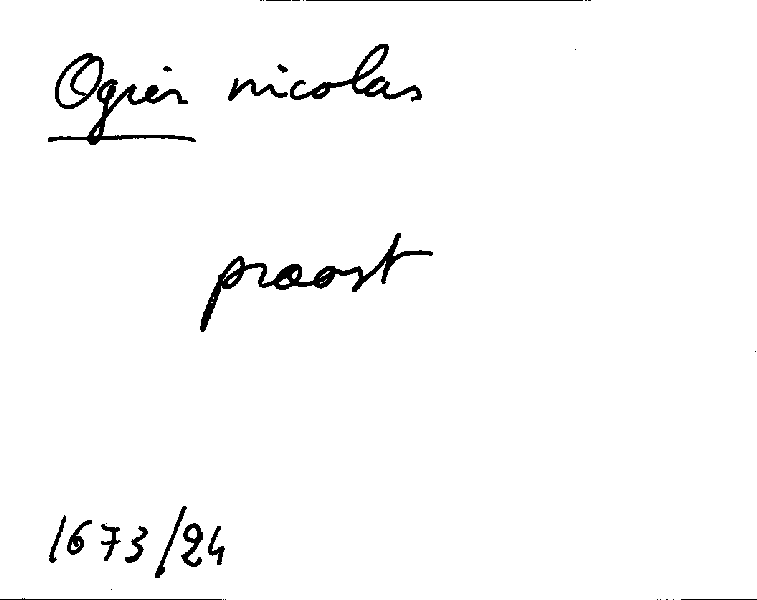 Ogier nicolas
proost
1673/24